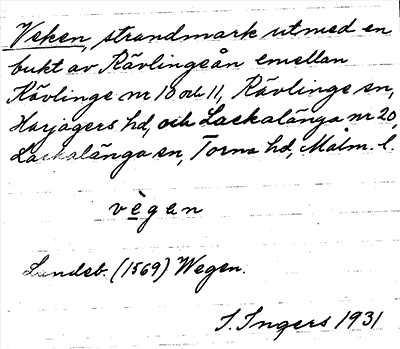 Veken, strandmark utmed en
bukt av Kävlingeån emellan
Kävlinge nr 10 och 11, Kävlinge sn,
Harjagers hd, och Lackalänga nr 20,
Lackalänga sn, Torna hd, Malm. l.
vègan
Landsb. (1569) Wegen.
I. Ingers 1931